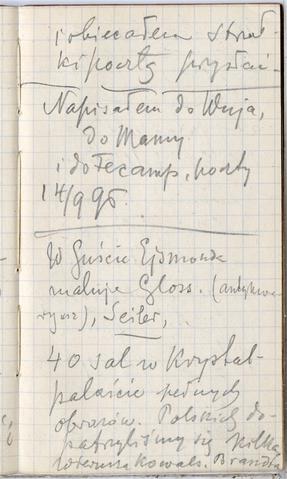 i obiecałem Strał-
ki poczty przysłać.
Napisałem do Wuja,
do Mamy
i do Fecamp, poczty
14/9 96
W guście Ejsmonda
maluje Gloss. (antykwa-
ryusz), Seiler,
40 sal w Krystal-
palaście pełnych
obrazów. Polskich do-
patrzyliśmy się kilka,
Wierusza Kowals. Brandta